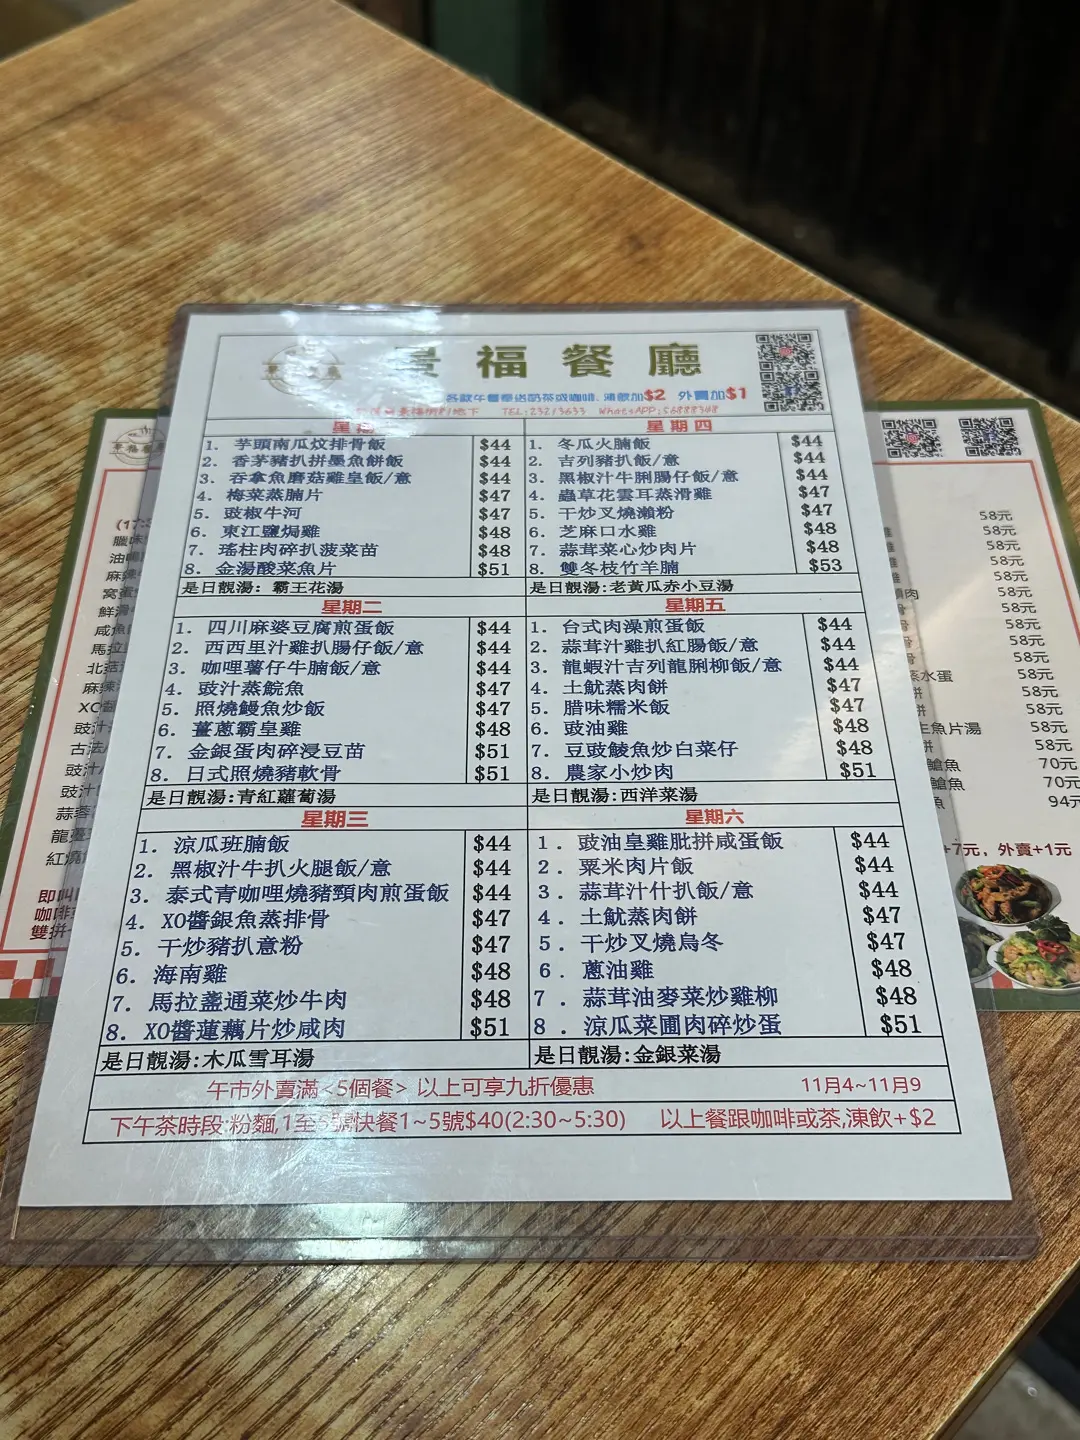 景福餐廳
各款午餐奉送奶茶或咖啡, 凍飲加$2 外賣加$1
地下 TEL:23213633 WhatsAPP:56888348
星期
1. 芋頭南瓜炆排骨飯 $44
2. 香茅豬扒拼墨魚餅飯 $44
3. 吞拿魚磨菇雞皇飯/意 $44
4. 梅菜蒸腩片 $47
5. 豉椒牛河 $47
6. 東江鹽焗雞 $48
7. 瑤柱肉碎扒菠菜苗 $48
8. 金湯酸菜魚片 $51
是日靚湯: 霸王花湯
星期二
1. 四川麻婆豆腐煎蛋飯 $44
2. 西西里汁雞扒腸仔飯/意 $44
3. 咖哩薯仔牛腩飯/意 $44
4. 豉汁蒸鯇魚 $47
5. 照燒鰻魚炒飯 $47
6. 薑蔥霸皇雞 $48
7. 金銀蛋肉碎浸豆苗 $51
8. 日式照燒豬軟骨 $51
是日靚湯:青紅蘿蔔湯
星期三
1. 涼瓜班腩飯 $44
2. 黑椒汁牛扒火腿飯/意 $44
3. 泰式青咖哩燒豬頸肉煎蛋飯 $44
4. XO醬銀魚蒸排骨 $47
5. 干炒豬扒意粉 $47
6. 海南雞 $48
7. 馬拉盞通菜炒牛肉 $48
8. XO醬蓮藕片炒咸肉 $51
是日靚湯:木瓜雪耳湯
星期四
1. 冬瓜火腩飯 $44
2. 吉列豬扒飯/意 $44
3. 黑椒汁牛脷腸仔飯/意 $44
4. 蟲草花雲耳蒸滑雞 $47
5. 干炒叉燒瀨粉 $47
6. 芝麻口水雞 $48
7. 蒜茸菜心炒肉片 $48
8. 雙冬枝竹羊腩 $53
是日靚湯:老黃瓜赤小豆湯
星期五
1. 台式肉澡煎蛋飯 $44
2. 蒜茸汁雞扒紅腸飯/意 $44
3. 龍蝦汁吉列龍脷柳飯/意 $44
4. 土魷蒸肉餅 $47
5. 腊味糯米飯 $47
6. 豉油雞 $48
7. 豆豉鯪魚炒白菜仔 $48
8. 農家小炒肉 $51
是日靚湯:西洋菜湯
星期六
1. 豉油皇雞肶拼咸蛋飯 $44
2. 粟米肉片飯 $44
3. 蒜茸汁什扒飯/意 $44
4. 土魷蒸肉餅 $47
5. 干炒叉燒烏冬 $47
6. 蔥油雞 $48
7. 蒜茸油麥菜炒雞柳 $48
8. 涼瓜菜圃肉碎炒蛋 $51
是日靚湯:金銀菜湯
午市外賣滿<5個餐>以上可享九折優惠 11月4~11月9
下午茶時段:粉麵,1至 號快餐1~5號$40(2:30~5:30) 以上餐跟咖啡或茶,凍飲+$2
58元
58元
58元
58元
肉 58元
58元
58元
58元
58元
水蛋 58元
58元
58元
魚片湯 58元
58元
鯧魚 70元
魚 70元
魚 94元
+7元, 外賣+1元
臘味
油鴨
麻辣
窩蛋
鮮滑
咸魚
馬拉
北菇
麻辣
XO醬
豉汁
古法
豉汁
豉汁
蒜蓉
龍躉
紅燒
即叫
咖啡
雙拼